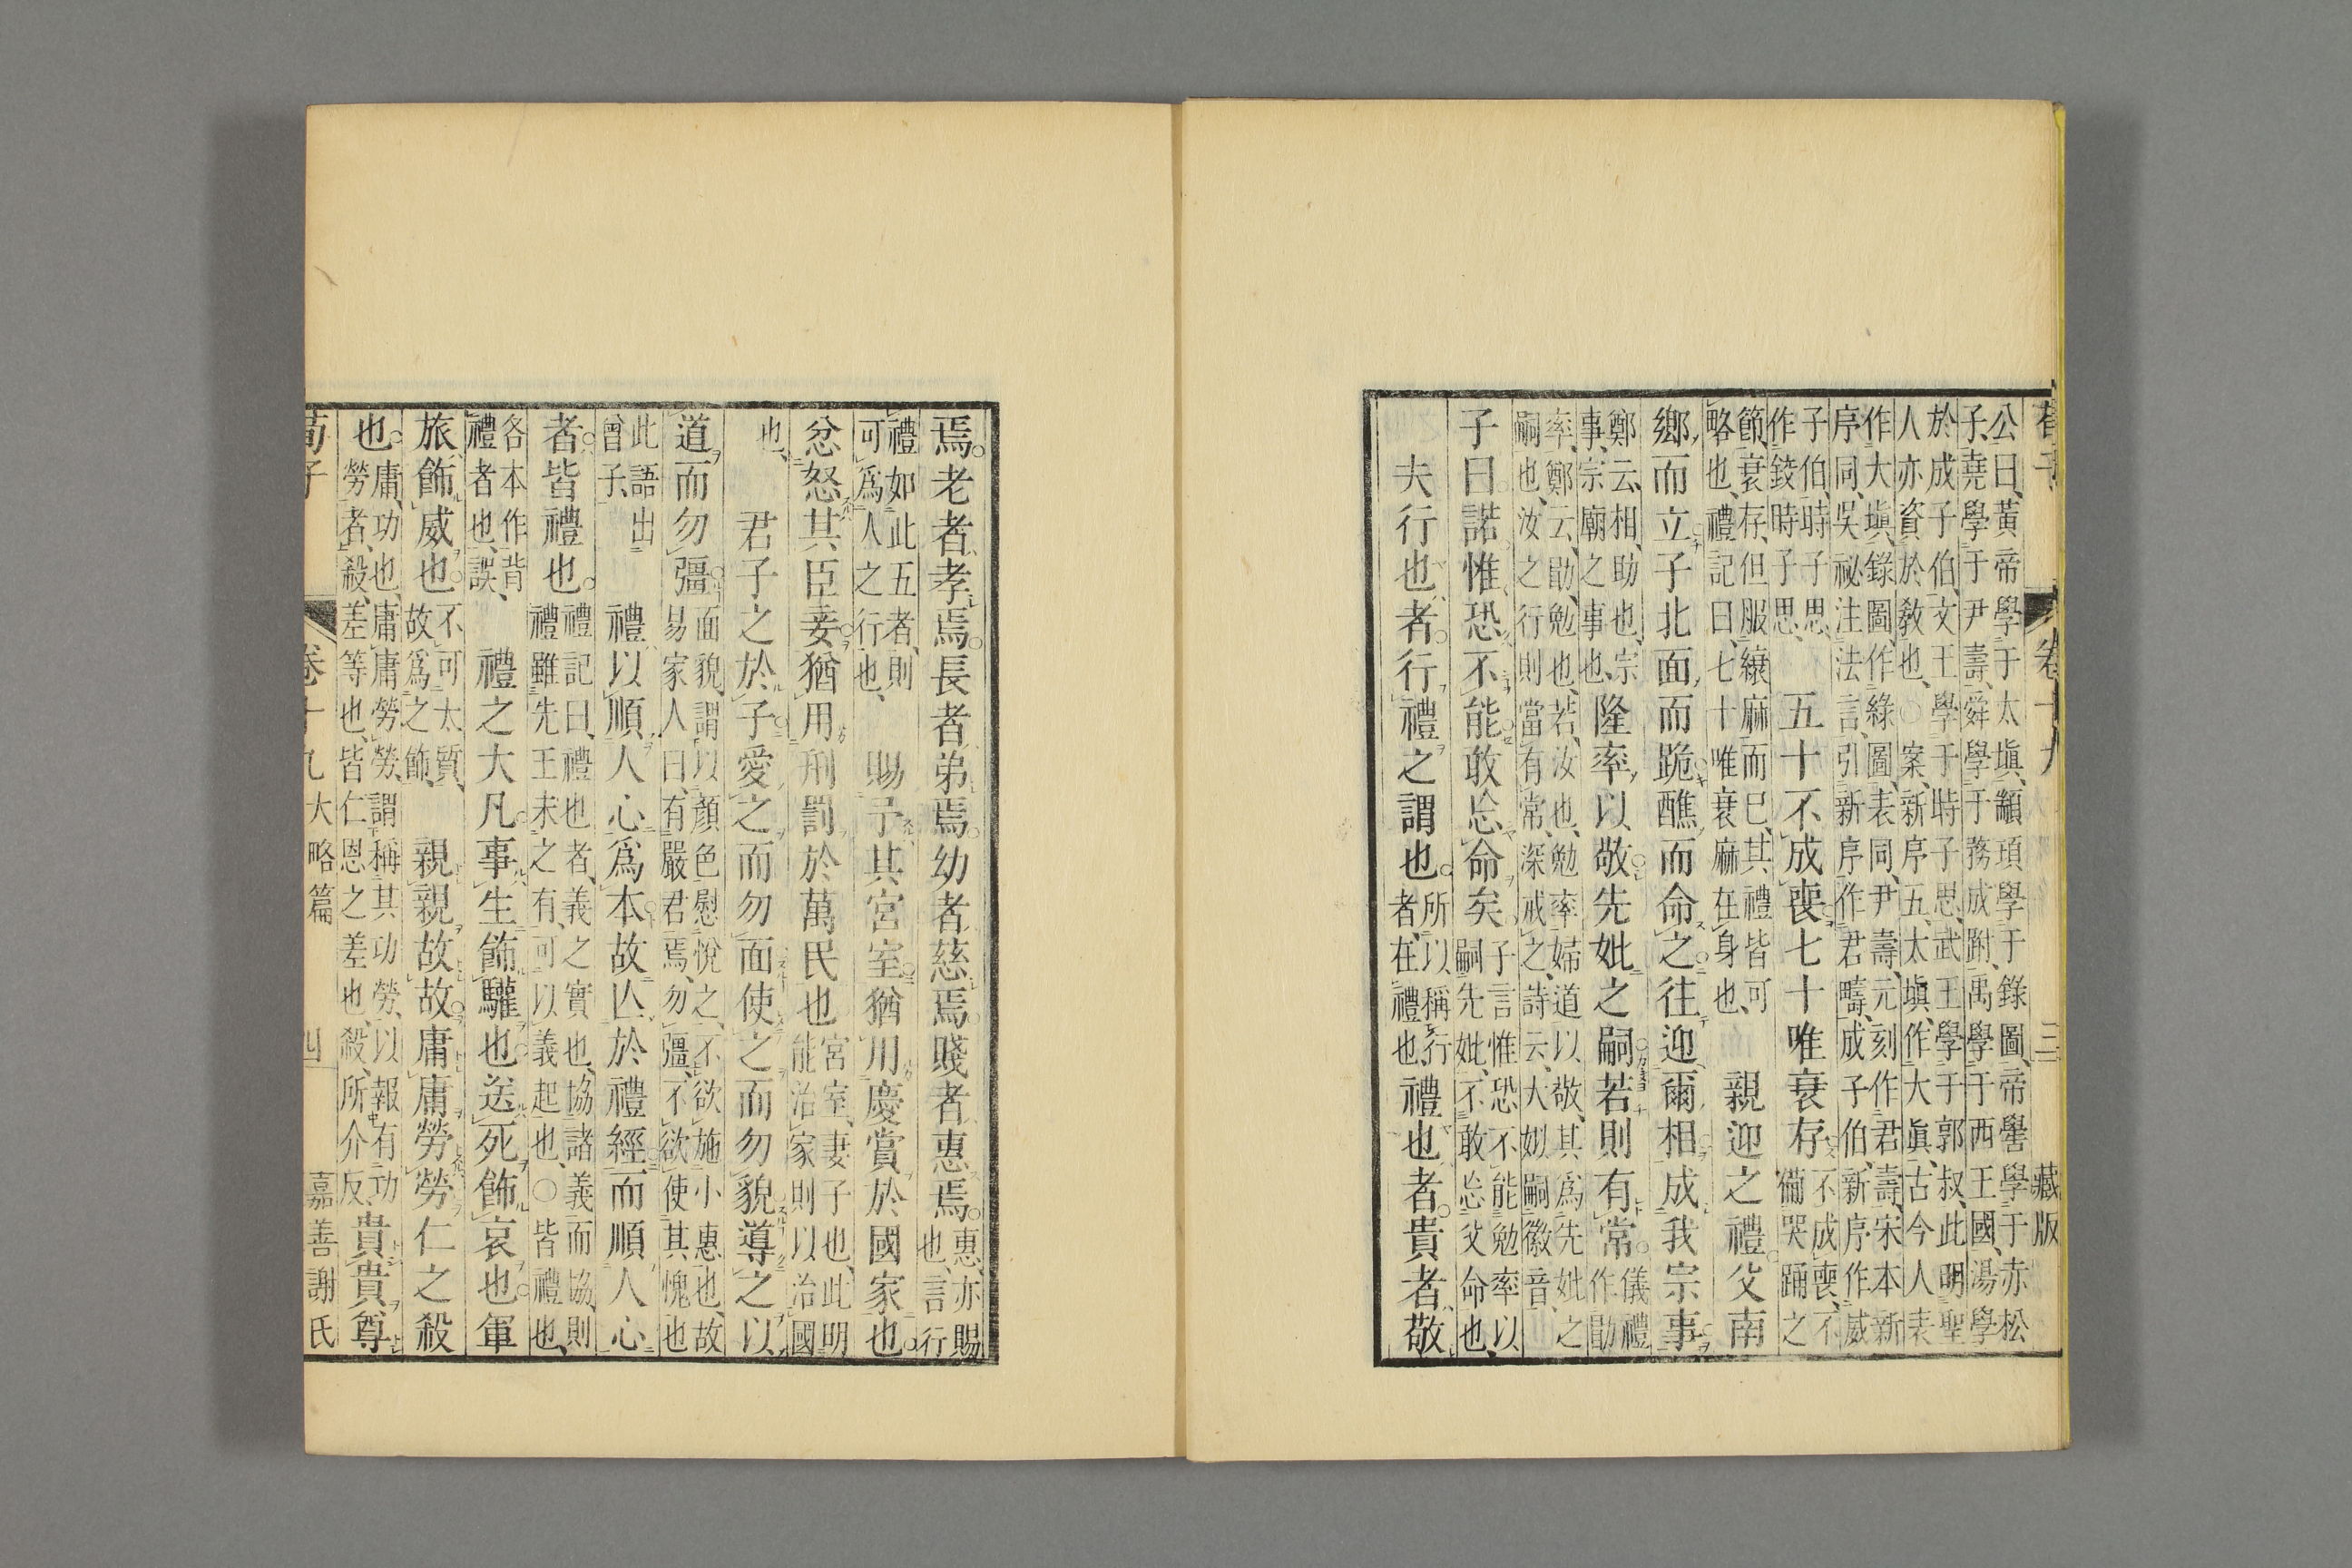 荀子 卷十九 三 藏版
公曰、黃帝學于太塡、顓頊學于錄圖、帝嚳學于赤松
子、堯學于尹壽、舜學于務成跗、禹學于西王國、湯學
於成子伯、文王學于時子思、武王學于郭叔、此明聖
人亦資於敎也、○案、新序五、太塡、作大眞、古今人表
作大塡、錄圖作綠圖、表同、尹壽、元刻作君壽、宋本新
序同、吳祕注法言、引新序作君疇、成子伯、新序作威
子伯、時子思、
作錽時子思、
五十不成喪七十唯衰存
不成喪、不
備哭踊之
節、衰存、但服縗麻而已、其禮皆可
略也、禮記曰、七十唯衰麻在身也、
親迎之禮。父南
鄉而立子北面而跪醮而命之往迎爾相成我宗事
鄭云、相、助也、宗
事、宗廟之事也、
隆率以敬先妣之嗣若則有常。
儀禮
作勖
率、鄭云、勖、勉也、若、汝也、勉率婦道以敬、其爲先妣之
嗣也、汝之行則當有常、深戒之、詩云、大姒嗣徽音、
子曰諾惟恐不能敢忘命矣
子言惟恐不能勉率以
嗣先妣、不敢忘父命也、
夫行也者。行禮之謂也。
所以稱行
者、在禮也、
禮也者。貴者敬
焉。老者孝焉。長者弟焉。幼者慈焉。賤者惠焉。
惠、亦賜
也、言行
禮如此五者、則
可爲人之行也、
賜予其宮室猶用慶賞於國家也。
忿怒其臣妾猶用刑罰於萬民也
宮室、妻子也、此明
能治家則以治國
也、
君子之於子愛之而勿面使之而勿貌導之以
道而勿彊。
面貌、謂以顏色慰悅之、不欲施小惠也、故
易家人曰、有嚴君焉、勿彊、不欲使其愧也
此語出
曾子、
禮以順人心爲本故亾於禮經而順人心
者。皆禮也。
禮記曰、禮也者、義之實也、協諸義而協、則
禮雖先王未之有、可以義起也、○皆禮也、
各本作背
禮者也、誤、
禮之大凡。事生飾驩也。送死飾哀也。軍
旅飾威也。
不可太質、
故爲之飾、
親親故故庸庸勞勞仁之殺
也。
庸、功也、庸庸勞勞、謂稱其功勞、以報有功
勞者、殺、差等也、皆仁恩之差也、殺、所介反、
貴貴尊
荀子 卷十九 大略篇 四 嘉善謝氏